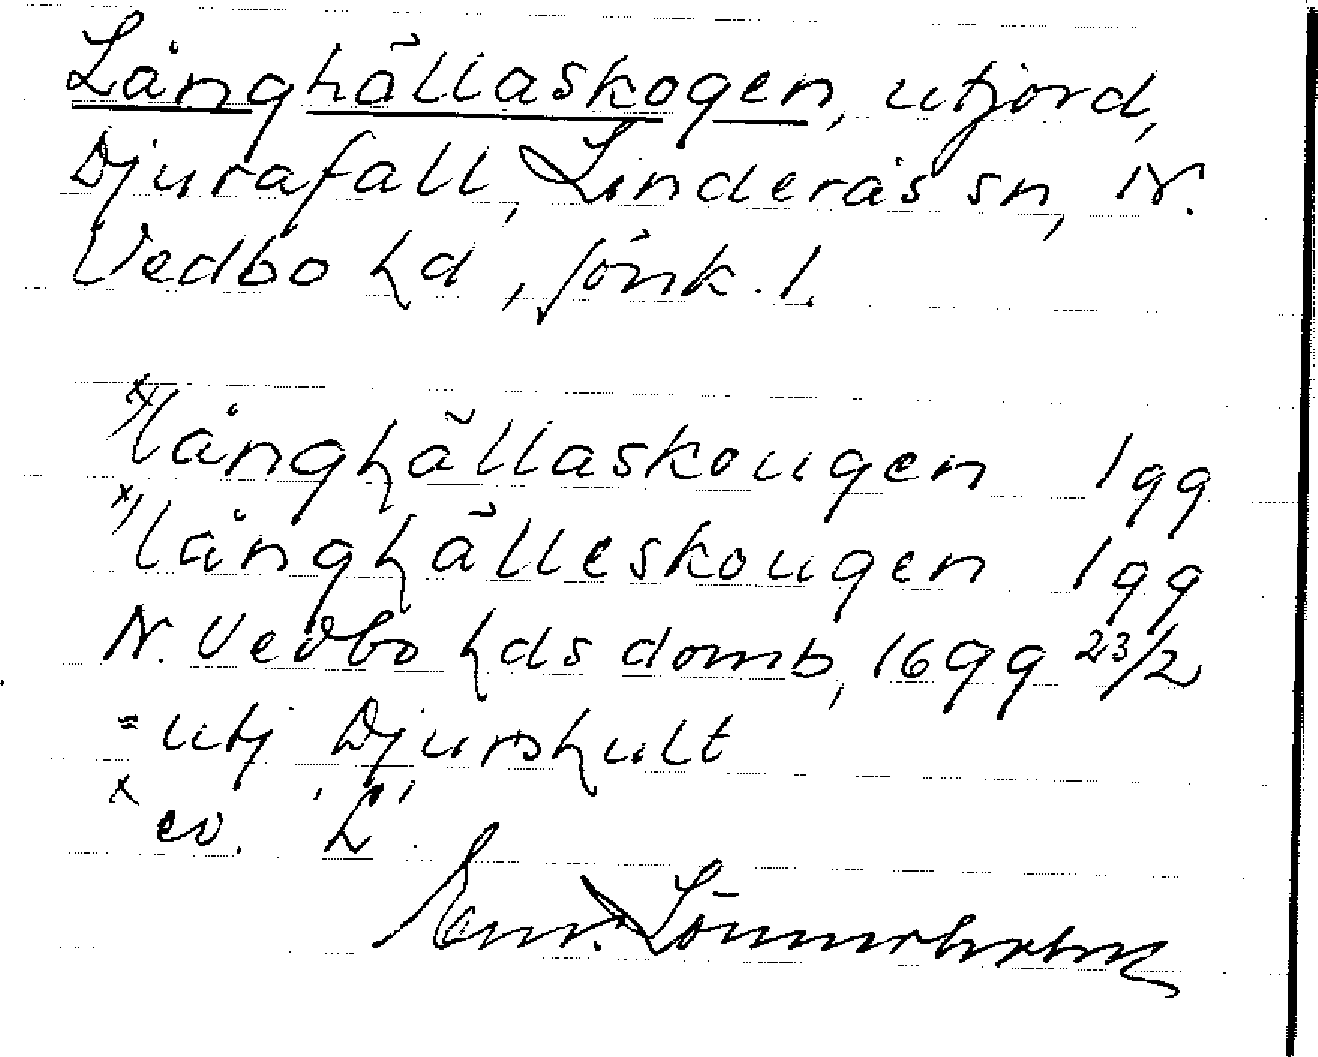 Långhällaskogen, utjord,
Djurafall, Linderås sn, N.
Vedbo hd, Jönk. l.
x) långhällaskougen 1 gg
x) långhälleskougen 1 gg
N. Vedbo hds domb, 1699 23/2
= utj Djurshult
x ev. 'L'